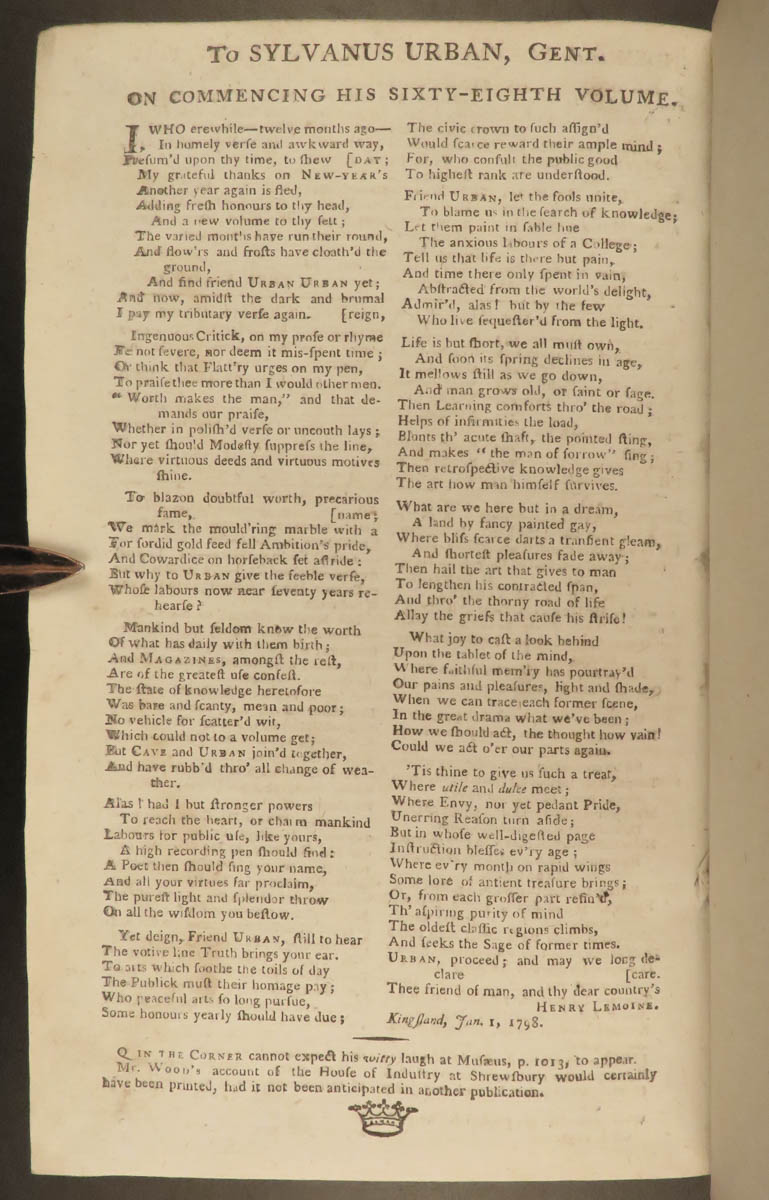 To SYLVANUS URBAN, Gent.
ON COMMENCING HIS SIXTY-EIGHTH VOLUME.
I, WHO erewhile—twelve months ago—
In homely verſe and awkward way,
Preſum'd upon thy time, to ſhew [DAY;
My grateful thanks on New-year's
Another year again is fled,
Adding freſh honours to thy head,
And a new volume to thy ſett;
The varied months have run their round,
And flow'rs and froſts have cloath'd the
ground,
And find friend Urban Urban yet;
And now, amidſt the dark and brumal
I pay my tributary verſe again. [reign,
Ingenuous Critick, on my proſe or rhyme
Be not ſevere, nor deem it mis-ſpent time;
Or think that Flatt'ry urges on my pen,
To praiſe thee more than I would other men.
"Worth makes the man," and that de-
mands our praiſe,
Whether in poliſh'd verſe or uncouth lays;
Nor yet ſhould Modeſty ſuppreſs the line,
Where virtuous deeds and virtuous motives
ſhine.
To blazon doubtful worth, precarious
fame, [name;
We mark the mould'ring marble with a
For ſordid gold feed fell Ambition's pride,
And Cowardice on horſeback ſet aſtride:
But why to Urban give the feeble verſe,
Whoſe labours now near ſeventy years re-
hearſe?
Mankind but ſeldom know the worth
Of what has daily with them birth;
And Magazines, amongſt the reſt,
Are of the greateſt uſe confeſt.
The ſtate of knowledge heretofore
Was bare and ſcanty, mean and poor;
No vehicle for ſcatter'd wit,
Which could not to a volume get;
But Cave and Urban join'd together,
And have rubb'd thro' all change of wea-
ther.
Alas! had I but ſtronger powers
To reach the heart, or charm mankind
Labours for public uſe, like yours,
A high recording pen ſhould find:
A Poet then ſhould ſing your name,
And all your virtues far proclaim,
The pureſt light and ſplendor throw
On all the wiſdom you beſtow.
Yet deign, Friend Urban, ſtill to hear
The votive line Truth brings your ear.
To arts which ſoothe the toils of day
The Publick muſt their homage pay;
Who peaceful arts ſo long purſue,
Some honours yearly ſhould have due;
The civic crown to ſuch aſſign'd
Would ſcarce reward their ample mind;
For, who conſult the public good
To higheſt rank are underſtood.
Friend Urban, let the fools unite,
To blame us in the ſearch of knowledge;
Let them paint in ſable hue
The anxious labours of a College;
Tell us that life is there but pain,
And time there only ſpent in vain,
Abſtracted from the world's delight,
Admir'd, alas! but by the few
Who live ſequeſter'd from the light.
Life is but ſhort, we all muſt own,
And ſoon its ſpring declines in age,
It mellows ſtill as we go down,
And man grows old, or ſaint or ſage.
Then Learning comforts thro' the road;
Helps of infirmities the load,
Blunts th' acute ſhaft, the pointed ſting,
And makes "the man of ſorrow" ſing;
Then retroſpective knowledge gives
The art how man himſelf ſurvives.
What are we here but in a dream,
A land by fancy painted gay,
Where bliſs ſcarce darts a tranſient gleam,
And ſhorteſt pleaſures fade away;
Then hail the art that gives to man
To lengthen his contracted ſpan,
And thro' the thorny road of life
Allay the griefs that cauſe his ſtrife!
What joy to caſt a look behind
Upon the tablet of the mind,
Where faithful mem'ry has pourtray'd
Our pains and pleaſures, light and ſhade,
When we can trace each former ſcene,
In the great drama what we've been;
How we ſhould act, the thought how vain!
Could we act o'er our parts again.
'Tis thine to give us ſuch a treat,
Where utile and dulce meet;
Where Envy, nor yet pedant Pride,
Unerring Reaſon turn aſide;
But in whoſe well-digeſted page
Inſtruction bleſſes ev'ry age;
Where ev'ry month on rapid wings
Some lore of antient treaſure brings;
Or, from each groſſer part refin'd,
Th' aſpiring purity of mind
The oldeſt claſſic regions climbs,
And ſeeks the Sage of former times.
Urban, proceed; and may we long de-
clare [care.
Thee friend of man, and thy dear country's
Henry Lemoine.
Kingſland, Jan. 1, 1798.
Q in the Corner cannot expect his witty laugh at Muſæus, p. 1013, to appear.
Mr. Wood's account of the Houſe of Induſtry at Shrewſbury would certainly
have been printed, had it not been anticipated in another publication.